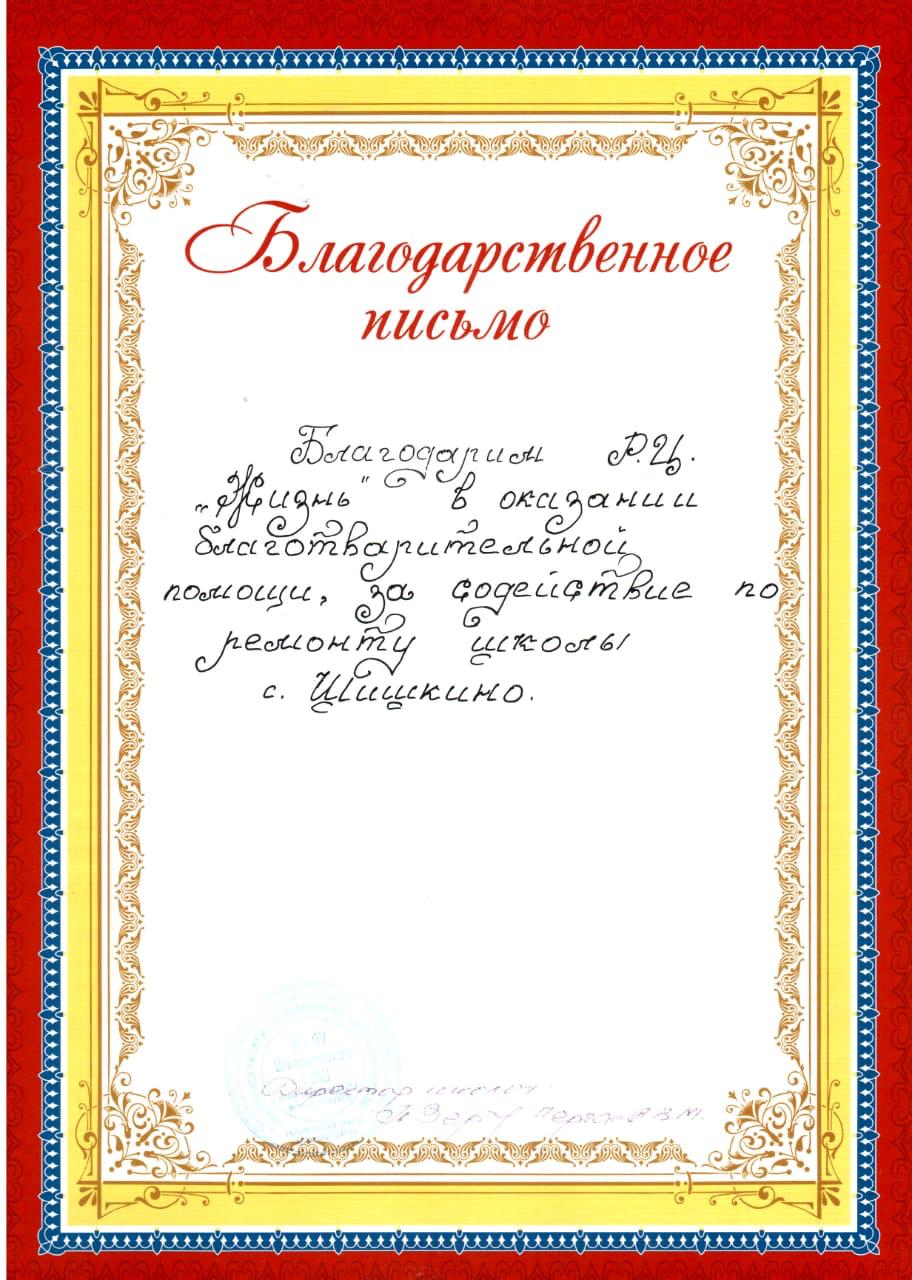 Благодарственное
письмо
Благодарим Р.Ц.
„Жизнь" в оказании
благотварительной
помощи, за содействие по
ремонту школы
с. Шишкино.
Директор школы
В.М.